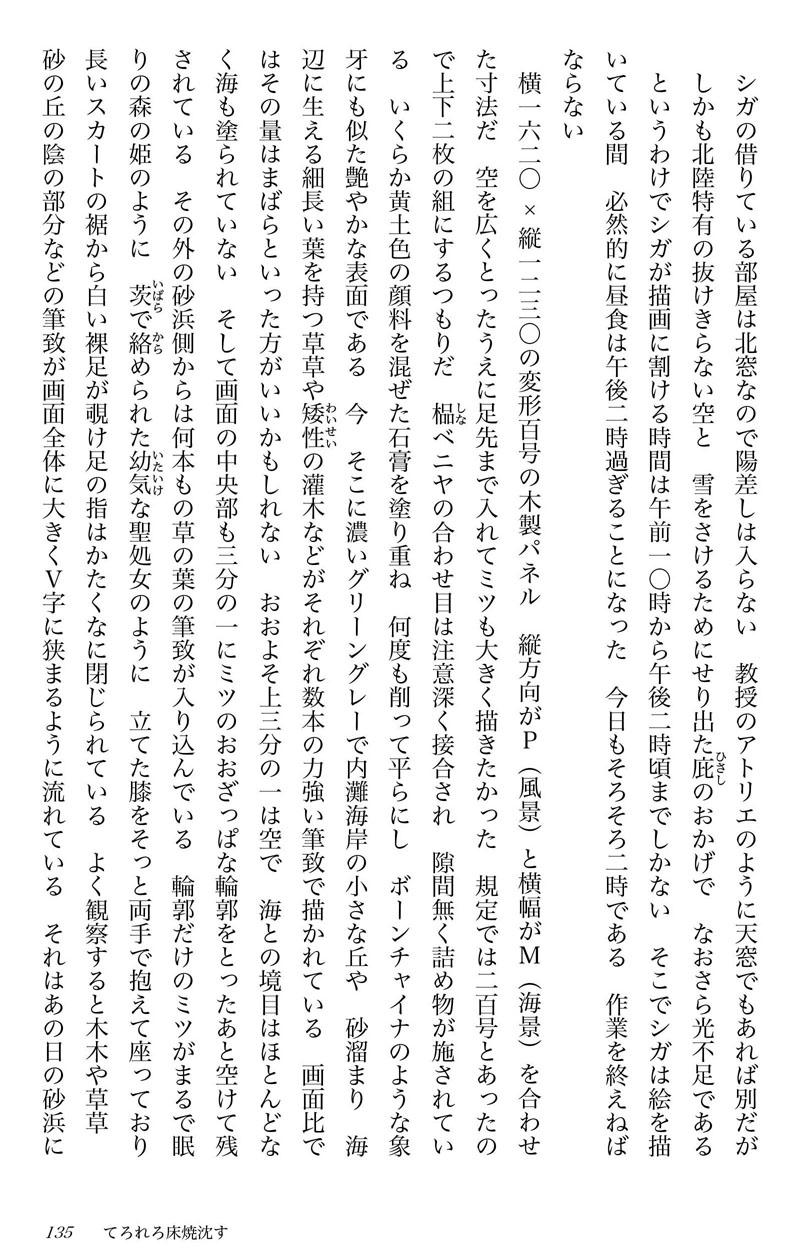 シガの借りている部屋は北窓なので陽差しは入らない　教授のアトリエのように天窓でもあれば別だが
しかも北陸特有の抜けきらない空と　雪をさけるためにせり出た庇のおかげで　なおさら光不足である
というわけでシガが描画に割ける時間は午前一〇時から午後二時頃までしかない　そこでシガは絵を描
いている間　必然的に昼食は午後二時過ぎることになった　今日もそろそろ二時である　作業を終えねば
ならない
横一六二〇×縦一二三〇の変形百号の木製パネル　縦方向がP（風景）と横幅がM（海景）を合わせ
た寸法だ　空を広くとったうえに足先まで入れてミツも大きく描きたかった　規定では二百号とあったの
で上下二枚の組にするつもりだ　榀ベニヤの合わせ目は注意深く接合され　隙間無く詰め物が施されてい
る　いくらか黄土色の顔料を混ぜた石膏を塗り重ね　何度も削って平らにし　ボーンチャイナのような象
牙にも似た艶やかな表面である　今　そこに濃いグリーングレーで内灘海岸の小さな丘や　砂溜まり　海
辺に生える細長い葉を持つ草草や矮性の灌木などがそれぞれ数本の力強い筆致で描かれている　画面比で
はその量はまばらといった方がいいかもしれない　おおよそ上三分の一は空で　海との境目はほとんどな
く海も塗られていない　そして画面の中央部も三分の一にミツのおおざっぱな輪郭をとったあと空けて残
されている　その外の砂浜側からは何本もの草の葉の筆致が入り込んでいる　輪郭だけのミツがまるで眠
りの森の姫のように　茨で絡められた幼気な聖処女のように　立てた膝をそっと両手で抱えて座っており
長いスカートの裾から白い裸足が覗け足の指はかたくなに閉じられている　よく観察すると木木や草草
砂の丘の陰の部分などの筆致が画面全体に大きくV字に狭まるように流れている　それはあの日の砂浜に
ひさし
しな
わいせい
いばら
から
いたいけ
135　てろれろ床焼沈す